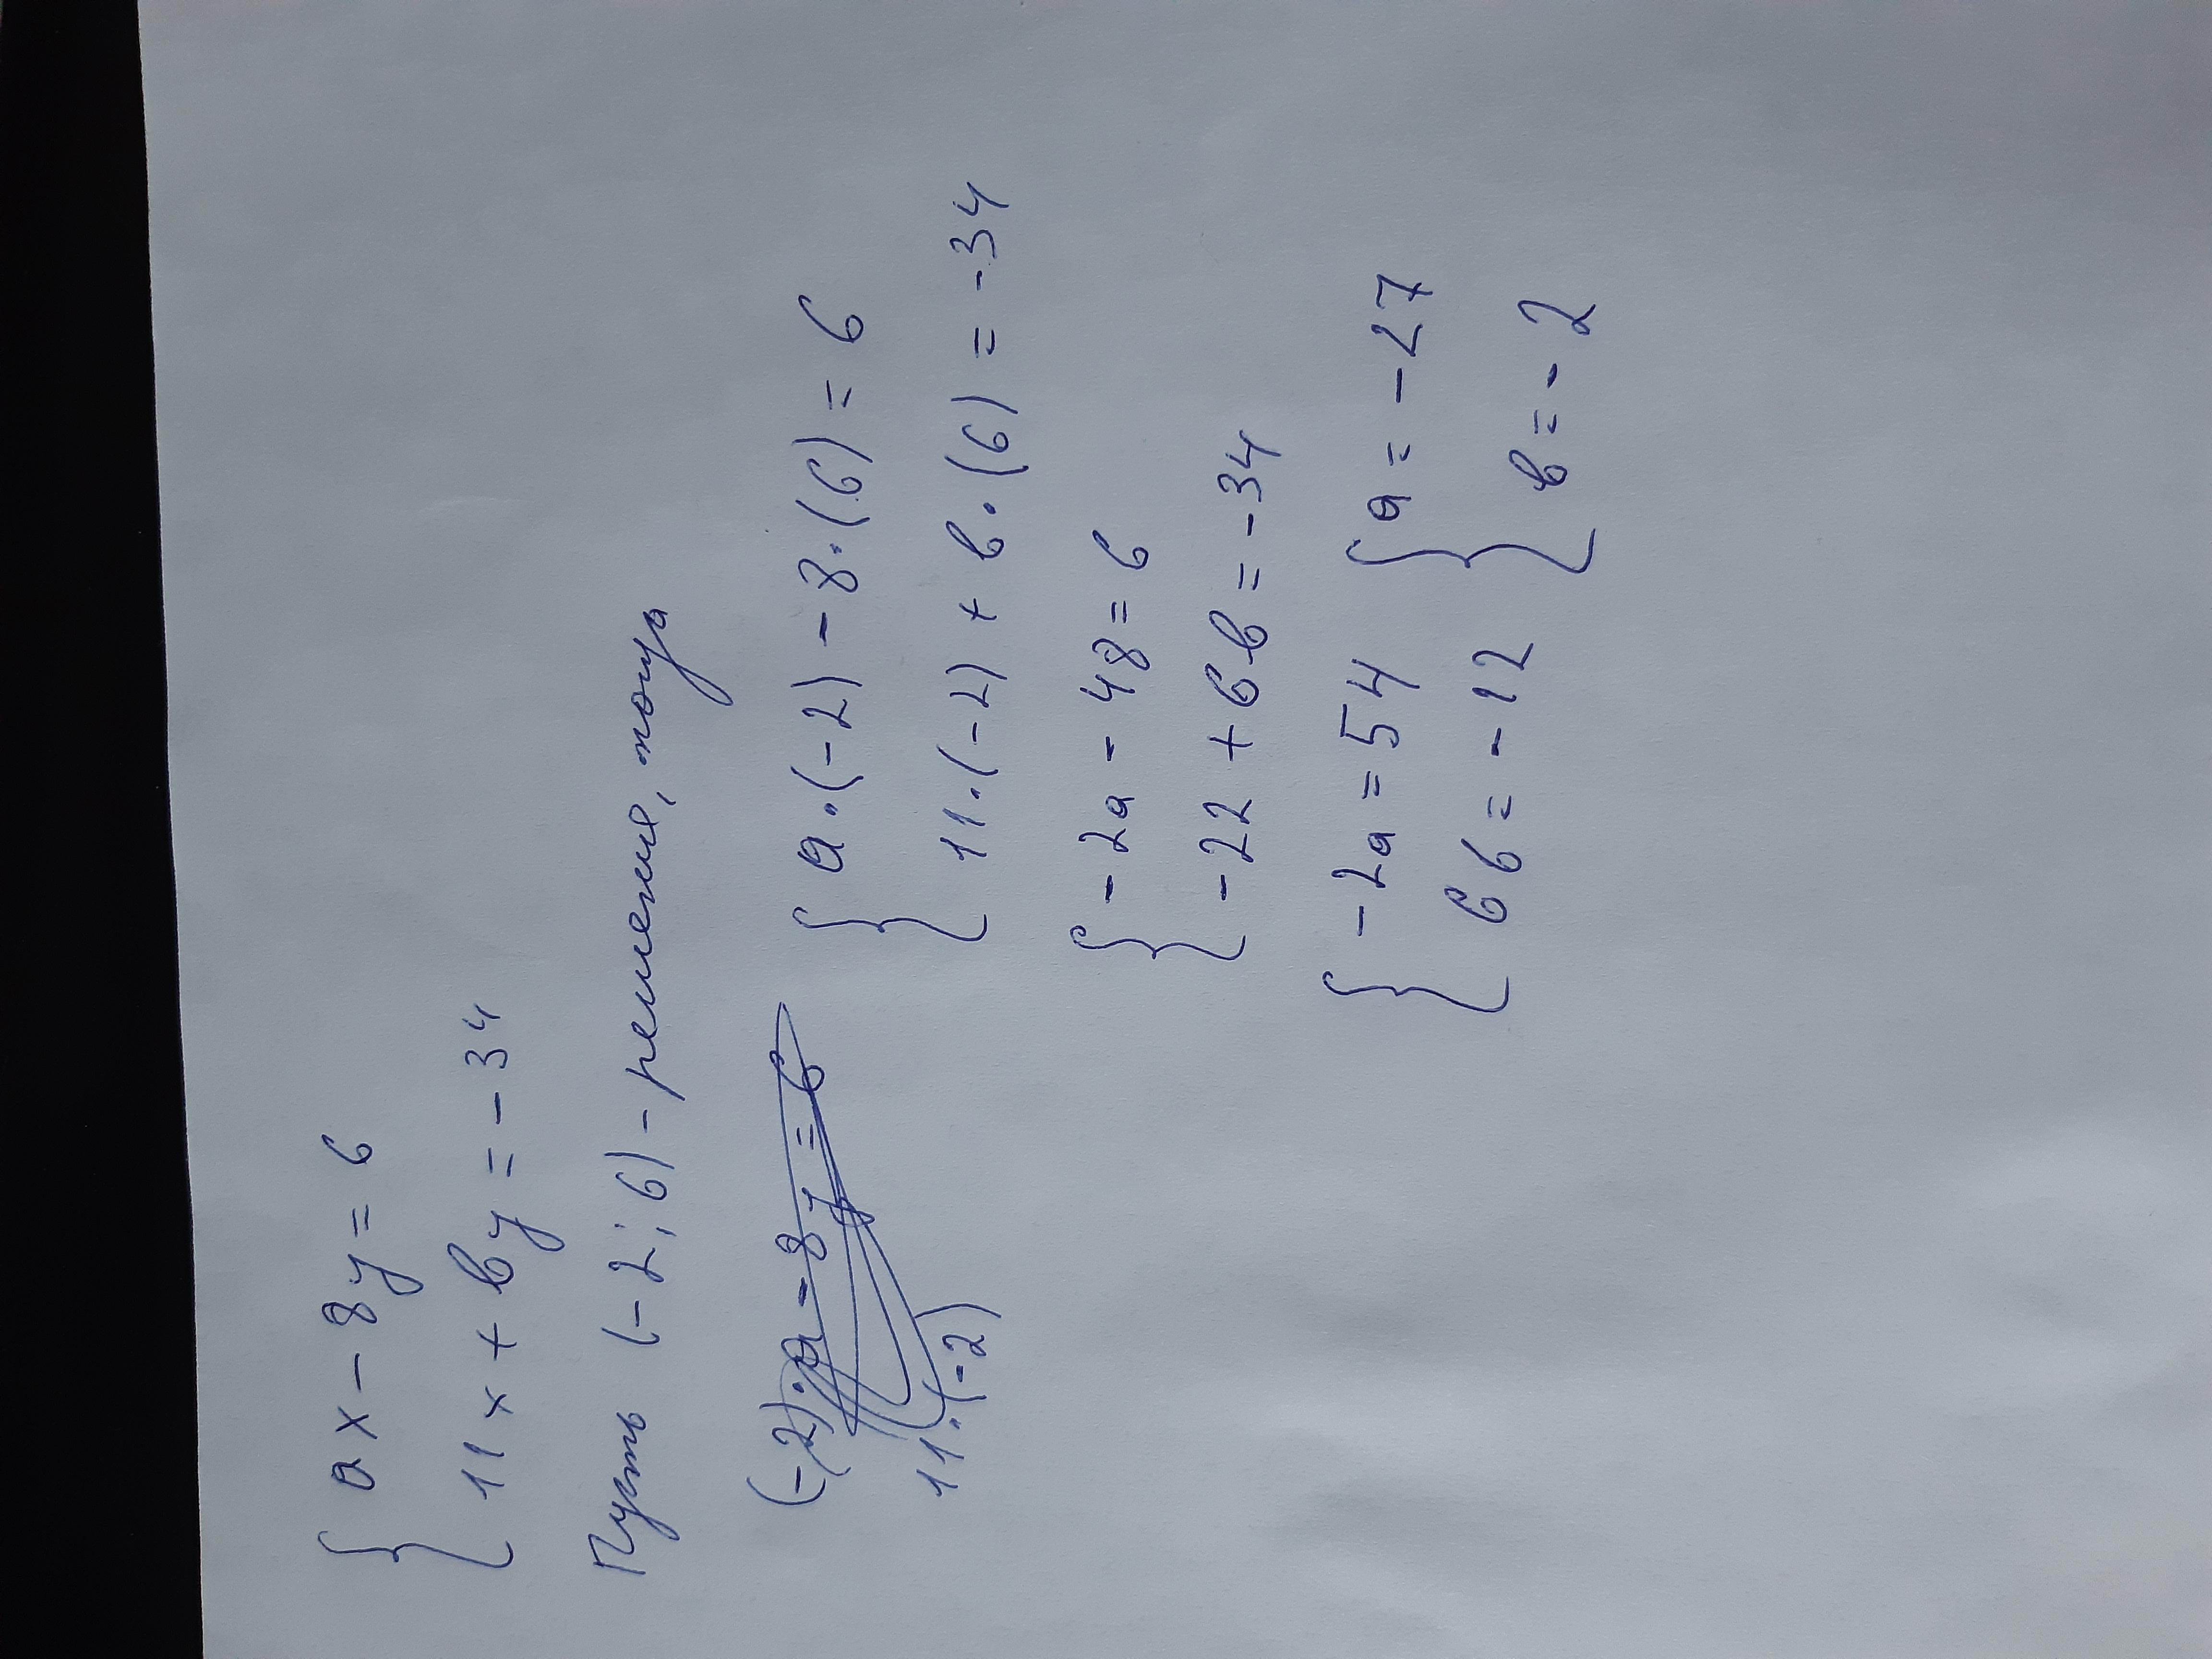 { ax - 8y = 6
11x + by = -34
Пусть (-2; 6) - решение, тогда
(-2)·a - 8y = 6
11·(-2)
{ a·(-2) - 8·(6) = 6
11·(-2) + b·(6) = -34
{ -2a - 48 = 6
-22 + 6b = -34
{ -2a = 54 { a = -27
6b = -12 b = -2